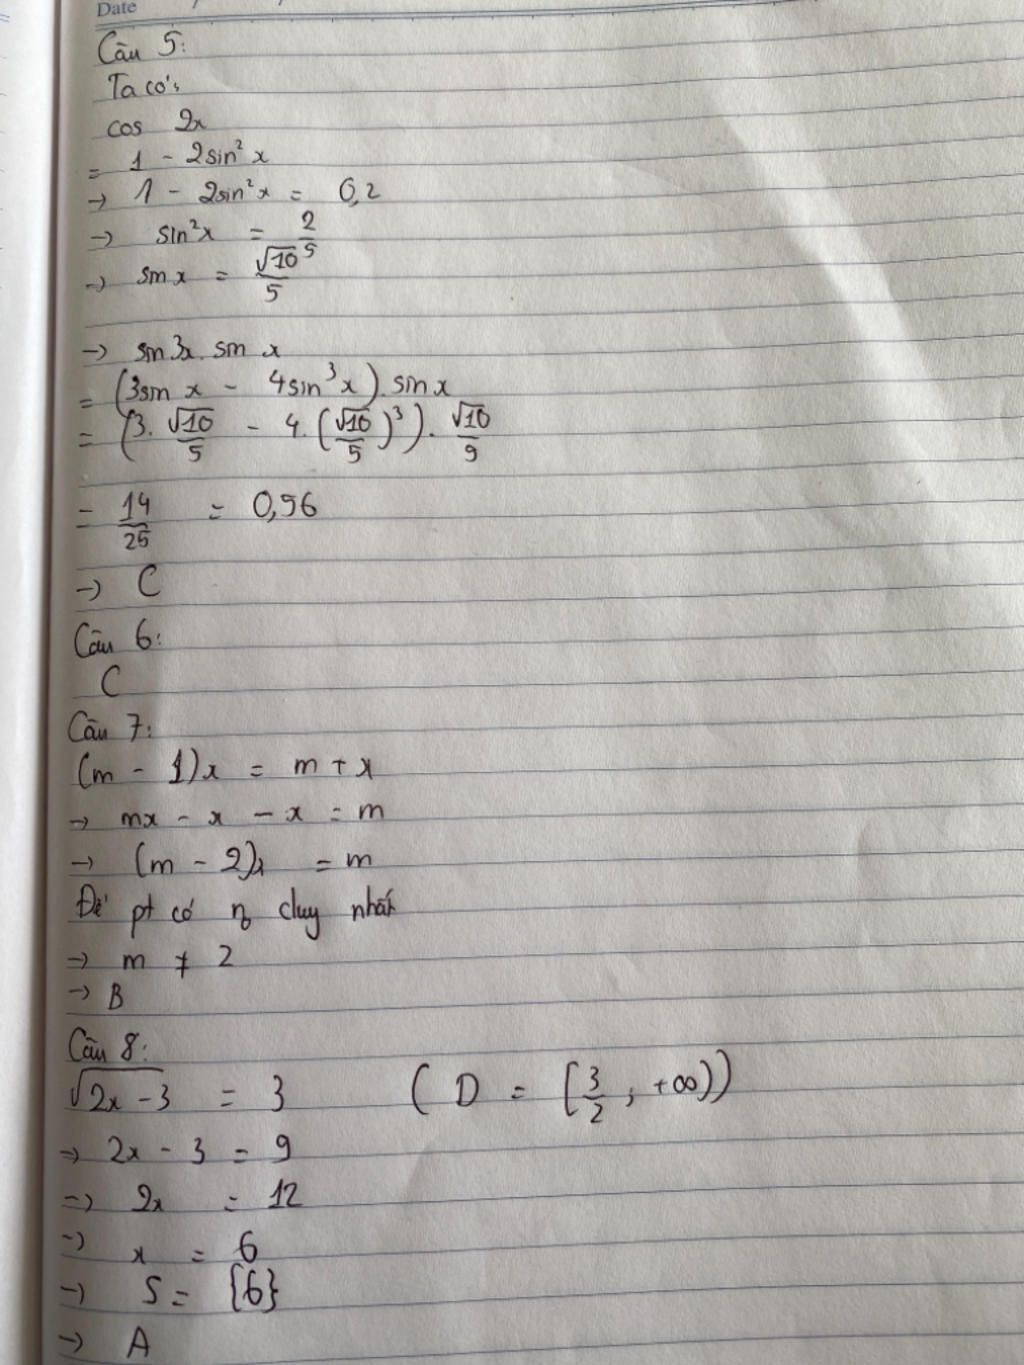 Date
Câu 5:
Ta có:
cos 2x
= 1 - 2sin²x
→ 1 - 2sin²x = 0,2
→ sin²x = 2/5
→ sin x = √10/5
→ sin3x. sin x
= (3sin x - 4sin³x).sinx
= (3. √10/5 - 4.(√10/5)³). √10/5
= 14/25 = 0,56
→ C
Câu 6:
C
Câu 7:
(m - 1)x = m + x
→ mx - x - x = m
→ (m - 2)x = m
Để pt có n₀ duy nhất
→ m ≠ 2
→ B
Câu 8:
√(2x-3) = 3 (D = [3/2; +∞))
→ 2x - 3 = 9
→ 2x = 12
→ x = 6
→ S = {6}
→ A